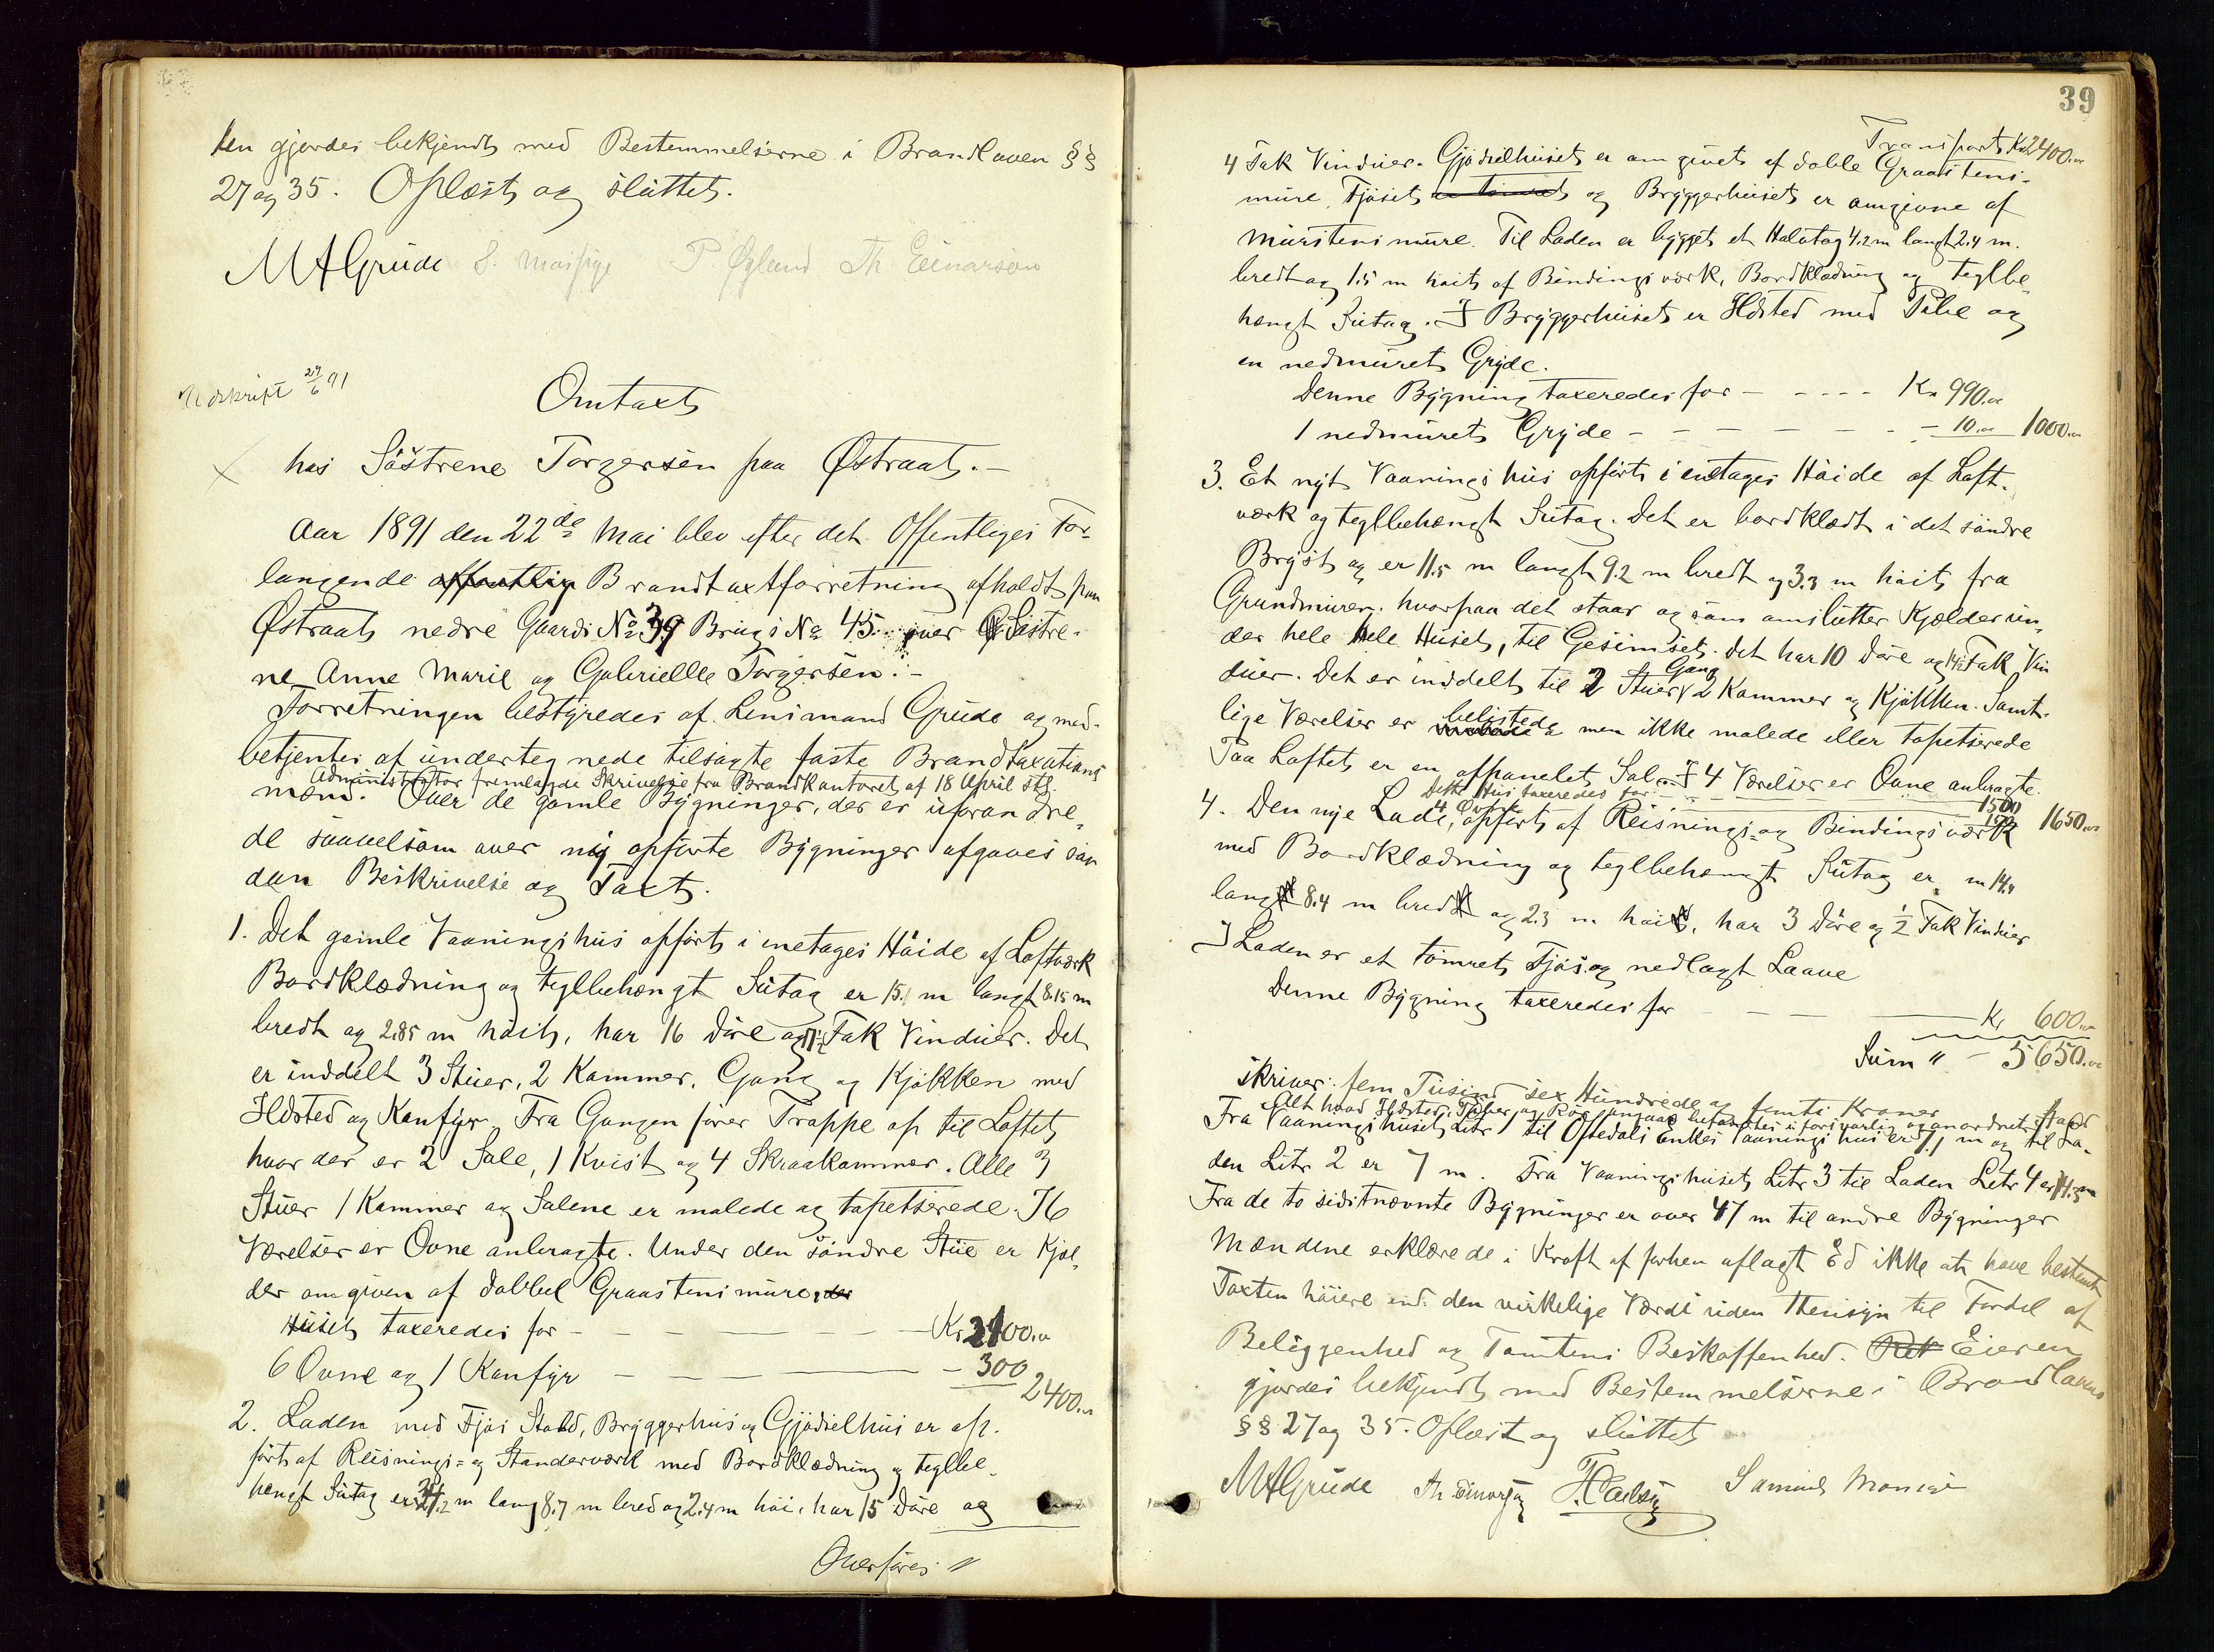 ten gjordes bekjendt med Bestemmelserne i Brandloven §§
27 og 35. Oplæst og sluttet.
M A Grude P. Øglænd Th Einarson
Udskrift 29/6 91
Omtaxt
hos Søstrene Torgersen paa Østraat.-
Aar 1891 den 22de Mai blev efter det Offentliges For-
langende Brandtaxtforretning afholdt paa
Østraat nedre Gaards No 39 Brugs No 45 over Søstre-
ne Anne Marie og Gabrielle Torgersen.-
Forretningen bestyredes af Lensmand Grude og med-
betjentes af undertegnede tilsagte faste Brandtaxations
mænd. Administrator fremlagde Skrivelse fra Brandkontoret af 18 April d.A.
Over de gamle Bygninger, der er uforandre-
de saavelsom over ny opførte Bygninger afgaves saa
dan Beskrivelse og Taxt.
1. Det gamle Vaaningshus opført i enetages Høide af Loftværk
Bordklædning og teglbehængt Sutag er 15.1 m langt 8.15 m
bredt og 2.85 m høit, har 16 Døre og Fak Vinduer. Det
er inddelt 3 Stuer, 2 Kammer, Gang og Kjøkken med
Ildsted og Komfyr. Fra Gangen fører Trappe op til Loftet
hvor der er 2 Sale, 1 Kvist og 4 Skraakammer. Alle 3
Stuer 1 Kammer og Salene er malede og tapetserede. I 6
Værelser er Ovne anbragte. Under den søndre Stue er Kjæl-
der omgiven af dobbel Graastensmure
Huset taxeredes for - - - - Kr 2100.00
6 Ovne og 1 Komfyr - - - 300
2400.00
2. Laden med Fjøs Stald, Bryggerhus og Gjødselhus er op-
ført af Reisnings- og Standerværk med Bordklædning og teglbe-
hængt Sutag er m lang 8.7 m bred og 2.4 m høi, har 15 Døre og
Overføres "
39
Transport Kr 2400.00
4 Fak Vinduer. Gjødselhuset er omgivet af doble Graastens-
mure, Fjøset og Bryggerhuset er omgivne af
Murstensmure. Til Laden er bygget et Halvtag 4.2 m langt 2.4 m.
bredt og 1.5 m høit af Bindingsværk, Bordklædning og teglbe-
hængt Sutag. I Bryggerhuset er Ildsted med Pibe og
en nedmuret Gryde.
Denne Bygning taxeredes for - - - - Kr 990.00
1 nedmuret Gryde - - - - - - 10.00 1000.00
3. Et nyt Vaaningshus opført i enetages Høide af Loft-
værk og teglbehængt Sutag. Det er bordklædt i det søndre
Bryst og er 11.5 m langt 9.2 m bredt og 3.3 m høit fra
Grundmuren, hvorpaa det staar og som omslutter Kjælder un-
der hele hele Huset, til Gesimset. Det har 10 Døre og Fak Vin
duer. Det er inddelt til 2 Stuer, Gang 2 Kammer og Kjøkken. Samt-
lige Værelser er belistede men ikke malede eller tapetserede
Paa Loftet er en afpanelet Sal. I 4 Værelser er Ovne anbragte.
Dette Hus taxeredes for - - 1500
4 Ovne 150 1650.00
4. Den nye Lade, opført af Reisnings- og Bindingsværk
med Bordklædning og teglbehængt Sutag er m 14.4
lang 8.4 m bred og 2.3 m høi, har 3 Døre og ½ Fak Vinduer
I Laden er et tømret Fjøs og nedlagt Laave
Denne Bygning taxeredes for - - - Kr 600.00
Sum " - 5650.00
skriver: fem Tusind sex Hundrede og femti Kroner
Alt hvad Ildsteder, Piber og Rør angaar befandtes i forsvarlig og anordnet Stand
Fra Vaaningshuset Litr 1 til Oftedals Enkes Vaaningshus er 7.1 m og til La-
den Litr 2 er 7 m. Fra Vaaningshuset Litr 3 til Laden Litr 4 er m
Fra de to sidstnævnte Bygninger er over 47 m til andre Bygninger
Mændene erklærede i Kraft af forhen aflagt Ed ikke at have bestemt
Taxten høiere end den virkelige Værdi uden Hensyn til Fordel af
Beliggenhed og Tomtens Beskaffenhed. Eieren
gjordes bekjendt med Bestemmelserne i Brandlovens
§§ 27 og 35. Oplæst og sluttet
M A Grude Th Einarson